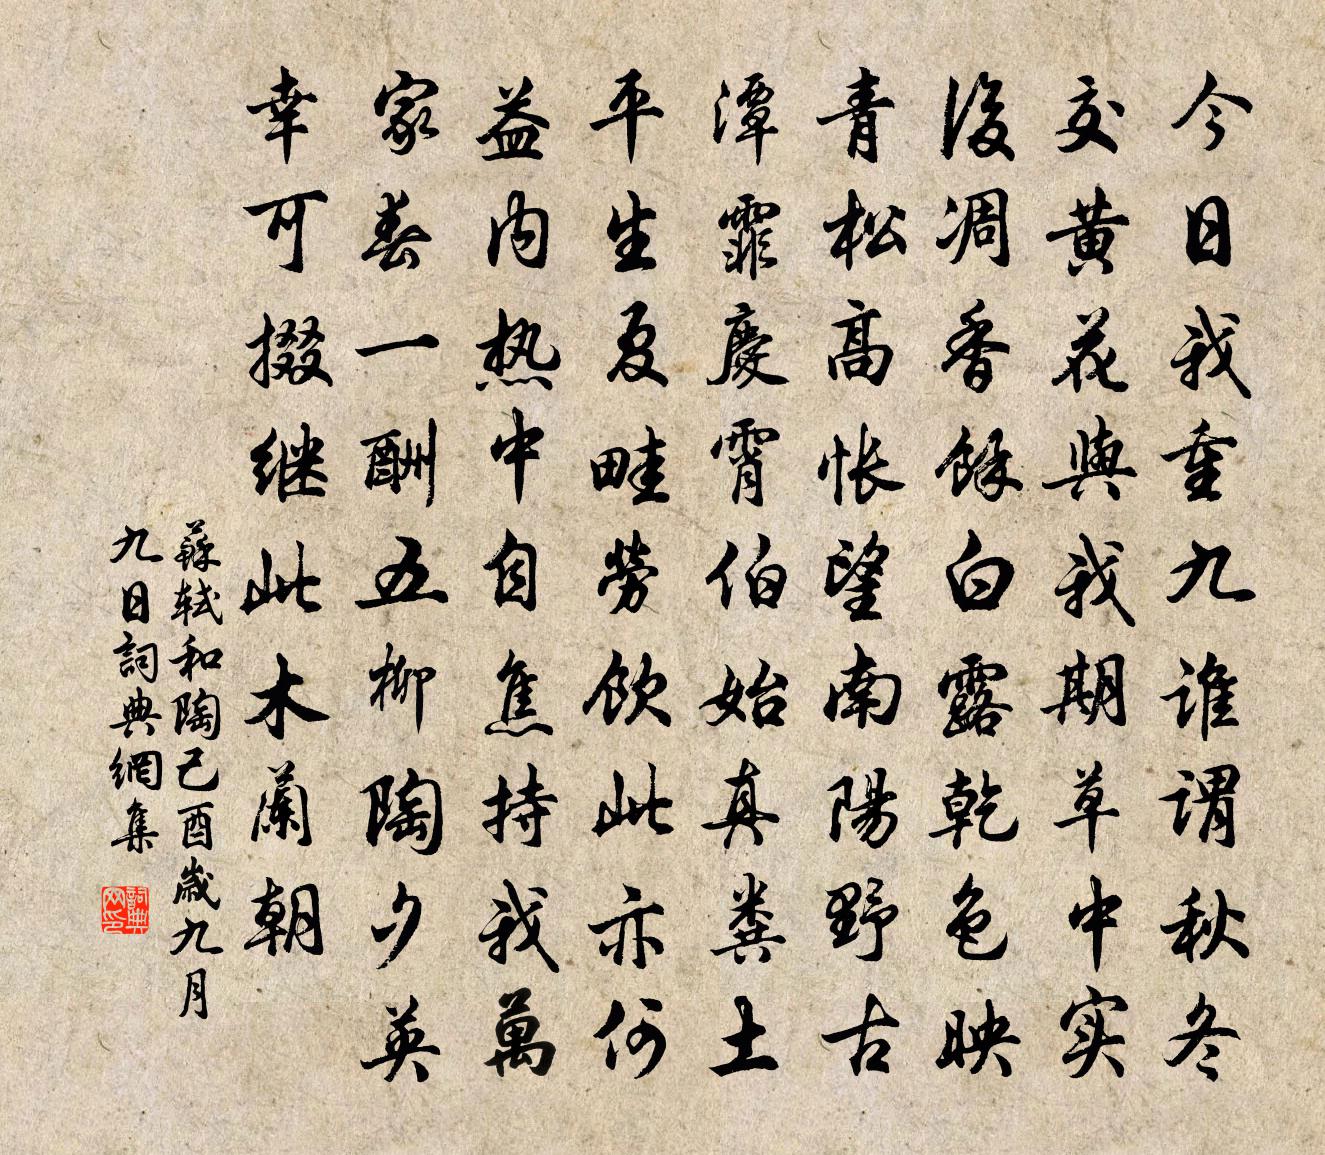 今日我重九谁谓秋冬
交黄花與我期草中实
後凋香餘白露乾色映
青松高怅望南陽野古
潭霏慶霄伯始真糞土
平生夏畦劳飲此亦何
益内热中自焦持我萬
家春一酬五柳陶夕英
幸可掇继此木蘭朝
蘇轼和陶己酉歲九月
九日詞典網集
詞典网印